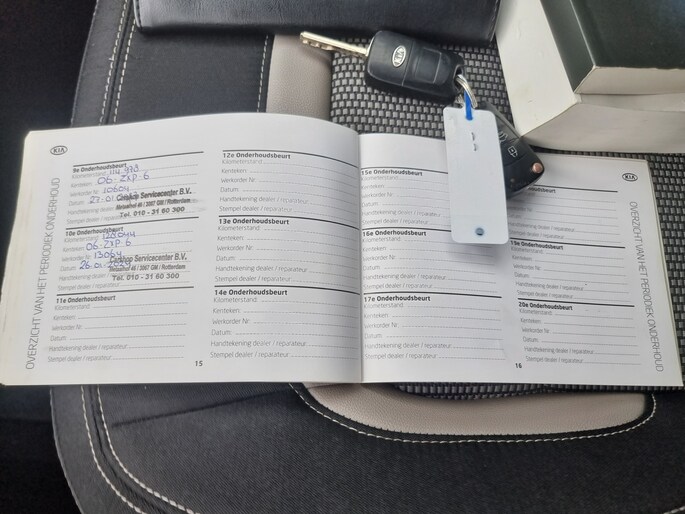 KIA
KIA
OVERZICHT VAN HET PERIODIEK ONDERHOUD
9e Onderhoudsbeurt
Kilometerstand
Kenteken: 06-ZXP-6
Werkorder Nr: 10604
Datum: 27-01
Servicecenter B.V.
Handtekening dealer / reparateur
/ 3067 GM / Rotterdam
Stempel dealer / reparateur
Tel. 010 - 21 60 300
10e Onderhoudsbeurt
Kilometerstand
Kenteken: 06-ZXP-6
Werkorder Nr: 13064
Datum: 26 01
Servicecenter B.V.
Handtekening dealer / reparateur
/ 3067 GM / Rotterdam
Stempel dealer / reparateur
Tel. 010 - 21 60 300
11e Onderhoudsbeurt
Kilometerstand
Kenteken:
Werkorder Nr:
Datum:
Handtekening dealer / reparateur
Stempel dealer / reparateur
12e Onderhoudsbeurt
Kilometerstand
Kenteken:
Werkorder Nr:
Datum:
Handtekening dealer / reparateur
Stempel dealer / reparateur
13e Onderhoudsbeurt
Kilometerstand
Kenteken:
Werkorder Nr:
Datum:
Handtekening dealer / reparateur
Stempel dealer / reparateur
14e Onderhoudsbeurt
Kilometerstand
Kenteken:
Werkorder Nr:
Datum:
Handtekening dealer / reparateur
Stempel dealer / reparateur
15
15e Onderhoudsbeurt
Kilometerstand
Kenteken:
Werkorder Nr:
Datum:
Handtekening dealer / reparateur
Stempel dealer / reparateur
16e Onderhoudsbeurt
Kilometerstand
Kenteken:
Werkorder Nr
Datum
Handtekening dealer / reparateur
Stempel dealer / reparateur
17e Onderhoudsbeurt
Kilometerstand
Kenteken:
Werkorder Nr:
Datum:
Handtekening dealer / reparateur
Stempel dealer / reparateur
KIA
Stempel dealer / reparateur
19e Onderhoudsbeurt
Kilometerstand
Kenteken:
Werkorder Nr:
Datum:
Handtekening dealer / reparateur
Stempel dealer / reparateur
20e Onderhoudsbeurt
Kilometerstand
Kenteken:
Werkorder Nr:
Datum:
Handtekening dealer / reparateur
Stempel dealer / reparateur
16
OVERZICHT VAN HET PERIODIEK ONDERHOUD